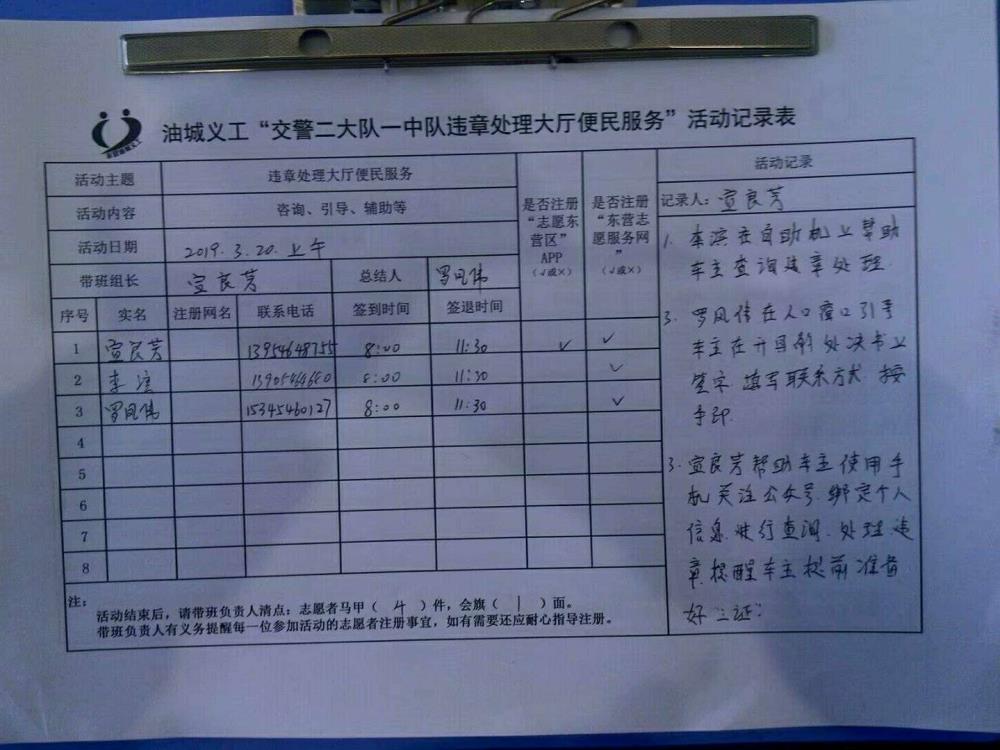 油城义工“交警二大队一中队违章处理大厅便民服务”活动记录表
活动主题 违章处理大厅便民服务
活动内容 咨询、引导、辅助等
活动日期 2019.3.20.上午
带班组长 宣良芳 总结人 罗凤伟
是否注册“志愿东营区”APP（√或×）
是否注册“东营志愿服务网”（√或×）
序号 实名 注册网名 联系电话 签到时间 签退时间
1 宣良芳 13954648755 8:00 11:30 √ √
2 李滨 8:00 11:30 √
3 罗凤伟 15345460127 8:00 11:30 √
4
5
6
7
8
注：
活动结束后，请带班负责人清点：志愿者马甲（ 4 ）件，会旗（ 1 ）面。
带班负责人有义务提醒每一位参加活动的志愿者注册事宜，如有需要还应耐心指导注册。
活动记录
记录人：宣良芳
1. 李滨在自助机上帮助
车主查询违章处理.
3. 罗凤伟在人口窗口引导
车主在开具的处决书上
签字.填写联系方式.按
手印.
3. 宣良芳帮助车主使用手
机关注公众号.绑定个人
信息进行查询.处理违
章提醒车主提前准备
好三证: